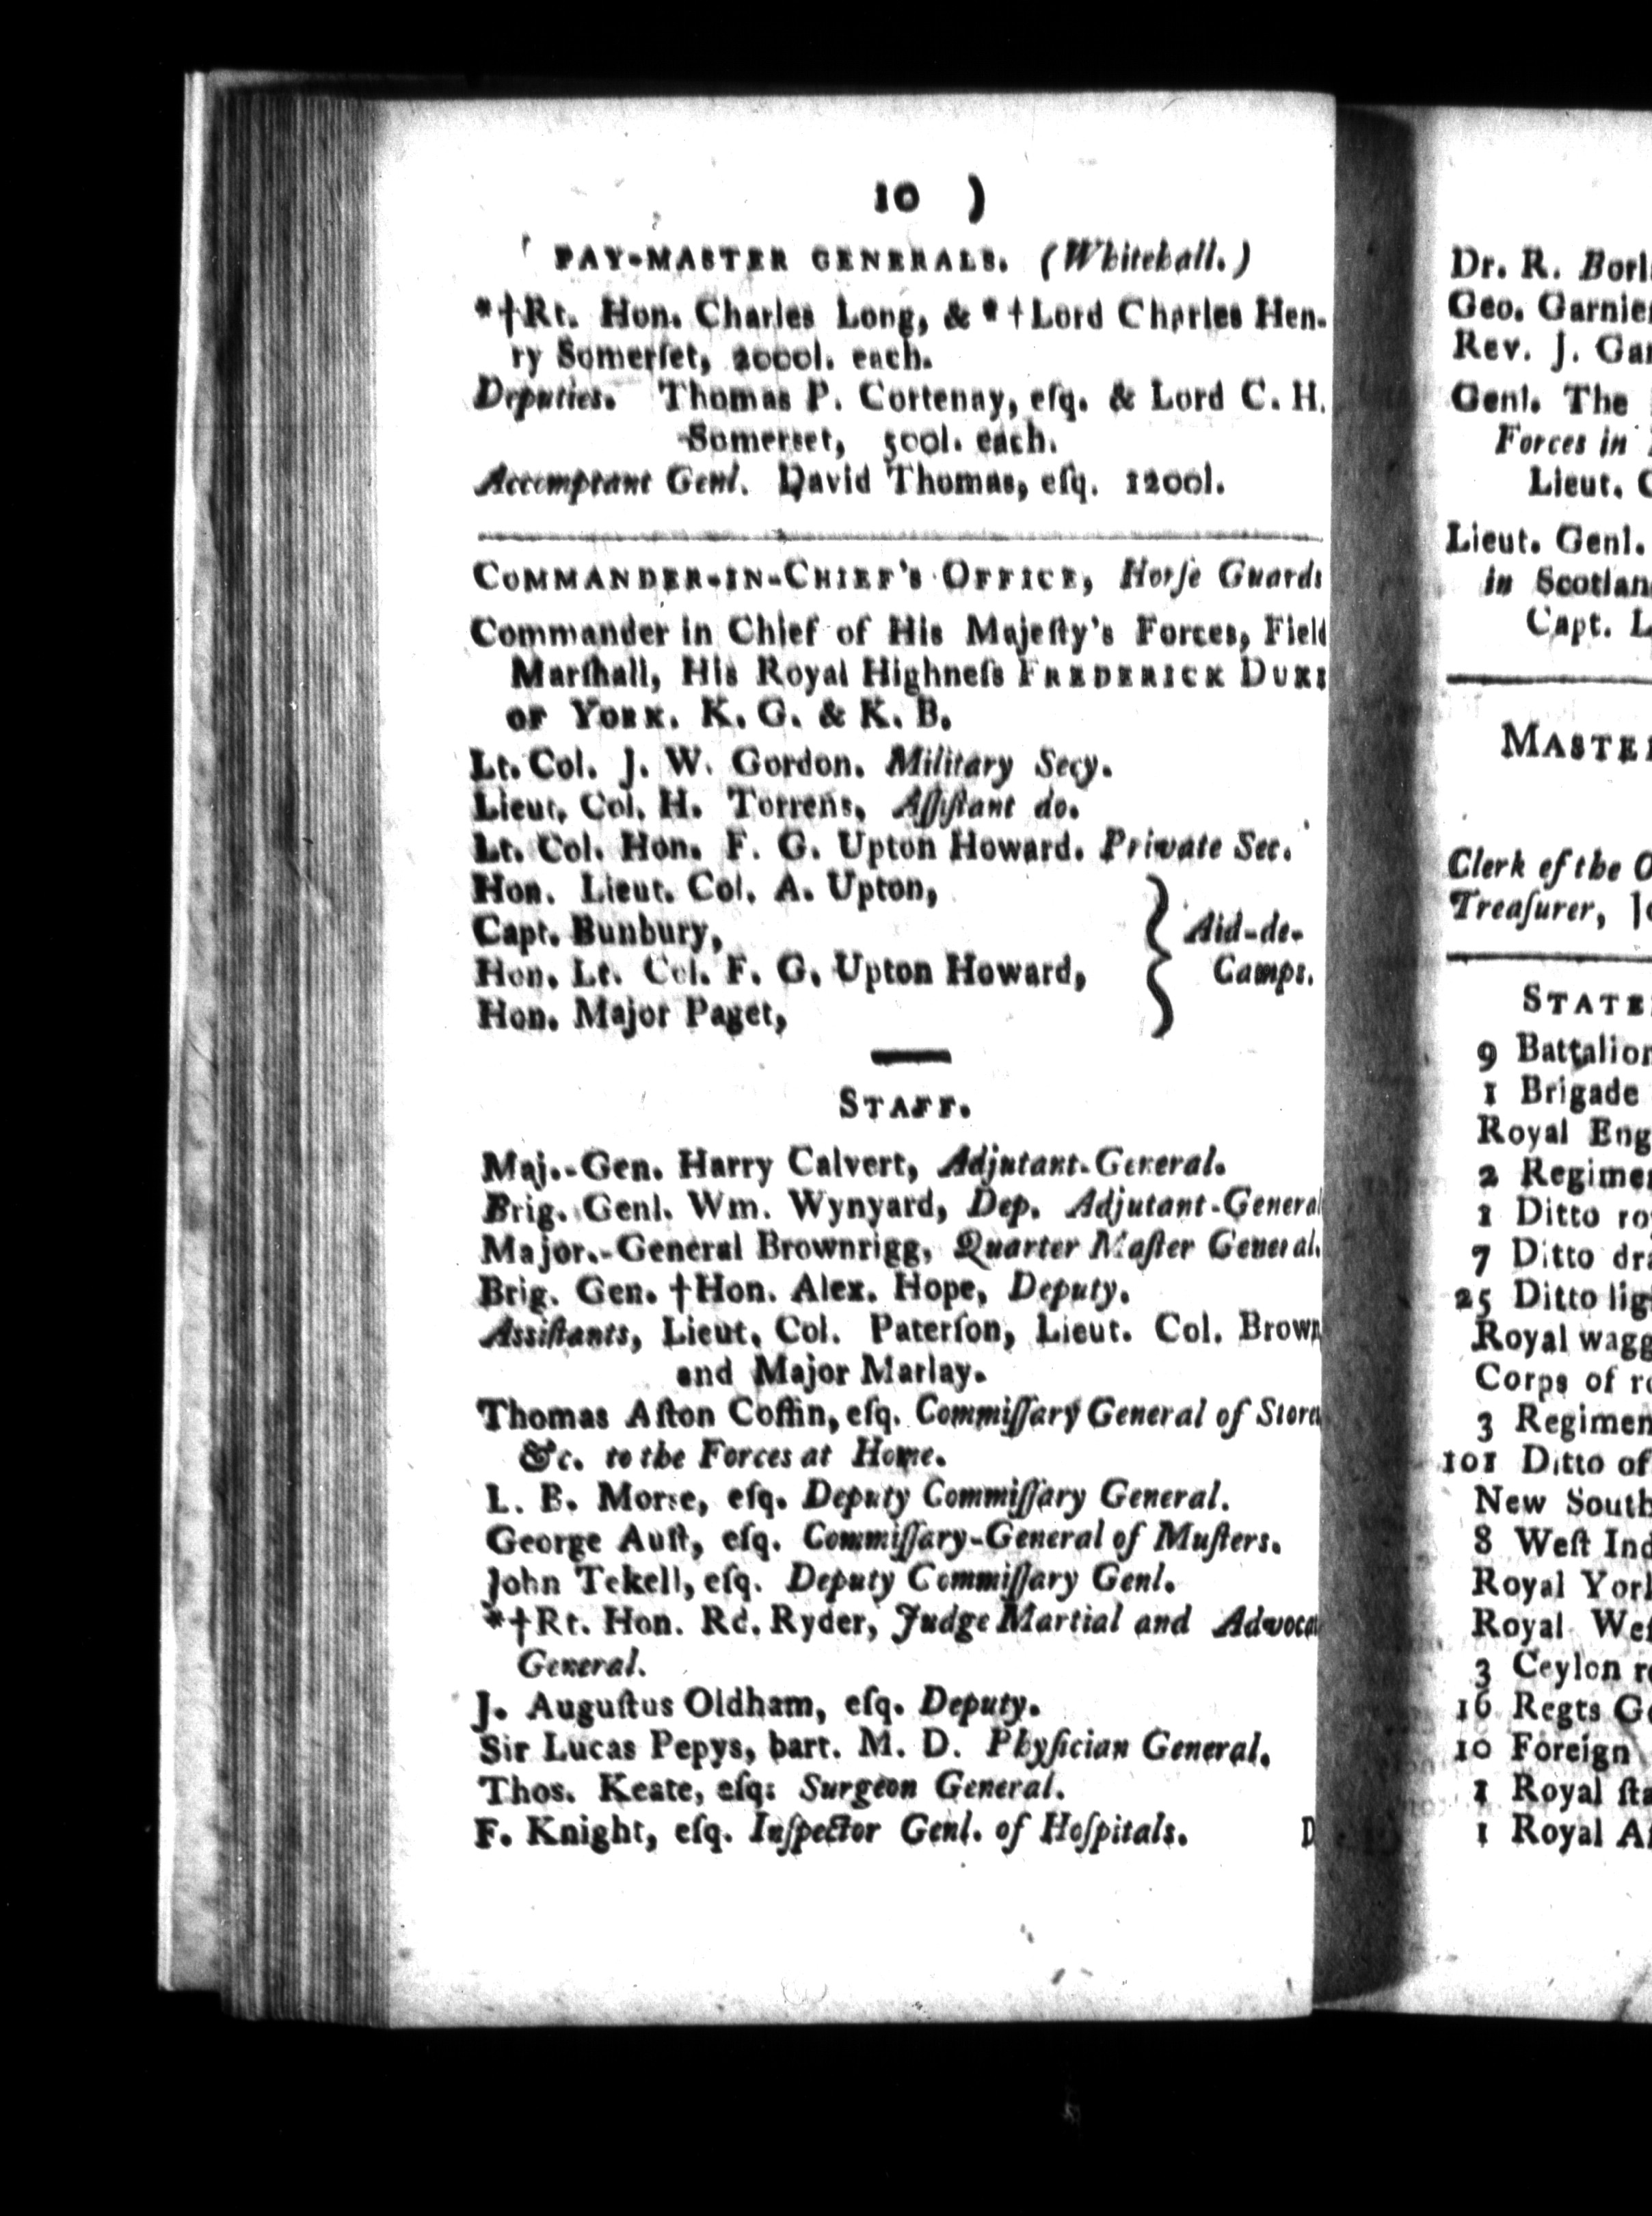 10 )
PAY-MASTER GENERALS. (Whitehall.)
*†Rt. Hon. Charles Long, & *†Lord Charles Hen-
ry Somerſet, 2000l. each.
Deputies. Thomas P. Cortenay, eſq. & Lord C. H.
Somerset, 500l. each.
Accomptant Genl. David Thomas, eſq. 1200l.
COMMANDER-IN-CHIEF'S OFFICE, Horſe Guards
Commander in Chief of His Majeſty's Forces, Field
Marſhall, His Royal Highneſs FREDERICK DUKE
OF YORK. K. G. & K. B.
Lt. Col. J. W. Gordon. Military Secy.
Lieut. Col. H. Torrens, Aſſiſtant do.
Lt. Col. Hon. F. G. Upton Howard. Private Sec.
Hon. Lieut. Col. A. Upton,
Capt. Bunbury,
Hon. Lt. Col. F. G. Upton Howard,
Hon. Major Paget,
} Aid-de-
Camps.
STAFF.
Maj.-Gen. Harry Calvert, Adjutant-General.
Brig. Genl. Wm. Wynyard, Dep. Adjutant-General
Major.-General Brownrigg, Quarter Maſter General.
Brig. Gen. †Hon. Alex. Hope, Deputy.
Assiſtants, Lieut. Col. Paterſon, Lieut. Col. Brown
and Major Marlay.
Thomas Aſton Coffin, eſq. Commiſſary General of Store
&c. to the Forces at Home.
L. B. Morse, eſq. Deputy Commiſſary General.
George Auſt, eſq. Commiſſary-General of Muſters.
John Tekell, eſq. Deputy Commiſſary Genl.
*†Rt. Hon. Rd. Ryder, Judge Martial and Advoca
General.
J. Auguſtus Oldham, eſq. Deputy.
Sir Lucas Pepys, bart. M. D. Phyſician General.
Thos. Keate, eſq: Surgeon General.
F. Knight, eſq. Inſpector Genl. of Hoſpitals. D
Dr. R. Borl
Geo. Garnie
Rev. J. Gar
Genl. The
Forces in
Lieut. C
Lieut. Genl.
in Scotlan
Capt. L
MASTE
Clerk of the O
Treaſurer, J
STATE
9 Battalion
1 Brigade
Royal Eng
2 Regime
1 Ditto ro
7 Ditto dra
25 Ditto lig
Royal wagg
Corps of ro
3 Regimen
101 Ditto of
New South
8 Weſt Ind
Royal York
Royal Weſ
3 Ceylon re
16 Regts G
10 Foreign
1 Royal ſta
1 Royal A